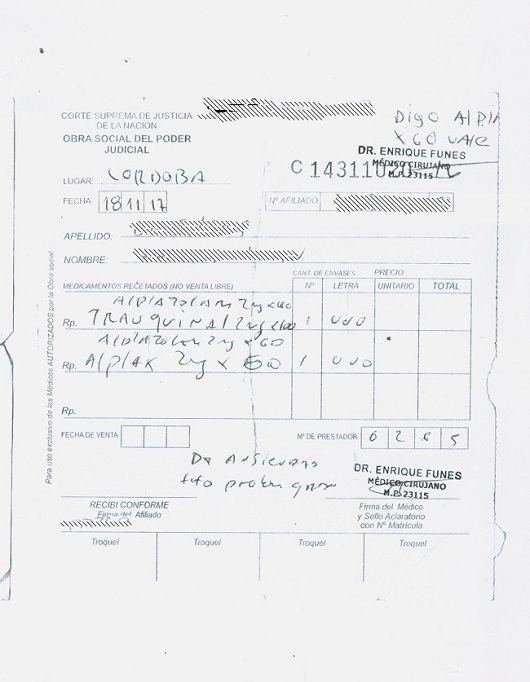 CORTE SUPREMA DE JUSTICIA
DE LA NACION
OBRA SOCIAL DEL PODER
JUDICIAL
Digo
x 60 VALE
DR. ENRIQUE FUNES
MÉDICO CIRUJANO
M.P. 23115
C 14311
LUGAR: CORDOBA
FECHA 18 11 17
Nº AFILIADO
APELLIDO:
NOMBRE:
CANT. DE ENVASES PRECIO
MEDICAMENTOS RECETADOS (NO VENTA LIBRE) Nº LETRA UNITARIO TOTAL
Alplazolam 2mg x 60
Rp. TRANQUINAL 2mg 1 UNO
Alplazolam 2mg x 60
Rp. Alplax 2mg x 60 1 UNO
Rp.
Para uso exclusivo de los Médicos AUTORIZADOS por la Obra social
FECHA DE VENTA
Nº DE PRESTADOR 6 2 6 5
Dx Ansiedad
tto prolongado
DR. ENRIQUE FUNES
MÉDICO CIRUJANO
M.P. 23115
RECIBI CONFORME
Firma del Afiliado
Firma del Médico
y Sello Aclaratorio
con Nº Matrícula
Troquel Troquel Troquel Troquel